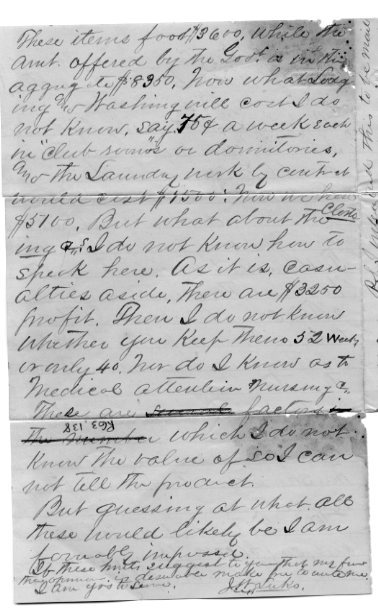 These items foot $3600, while the
amt. offered by the Govt. is in the
aggregate $8350. Now what Lodg
ing & Washing will cost I do
not know, say 75¢ a week each
in "club rooms" or dormitories,
& the Laundry work by contract
would cost $1500. Now we have
$5100. But what about the Cloth
ing &c, I do not know how to
speak here. As it is, casu-
alties aside, there are $3250
profit. Then I do not know
whether you keep them 52 weeks
or only 40. Nor do I know as to
Medical attention Nursing &c.
These are several factors
the number which I do not
R63.138
know the value of so I can
not tell the product.
But guessing at what all
these would likely be I am
favorably impressed.
If these hints suggest to you that my
opinion is desirable make you to write me
I am yrs to serve.